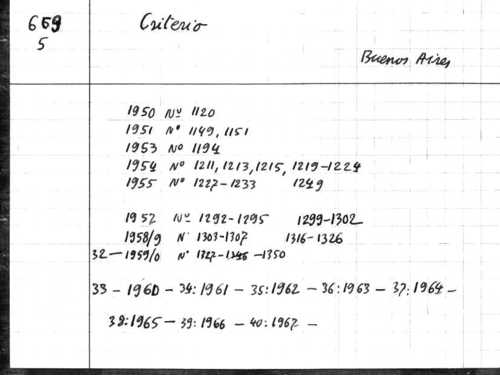 659 Criterio
5
Buenos Aires
1950 No 1120
1951 No 1149, 1151
1953 No 1194
1954 No 1211, 1213, 1215, 1219-1224
1955 No 1227-1233 1249
1957 No 1292-1295 1299-1302
1958/9 N° 1303-1307 1316-1326
32-1959/0 N° 1327-1346 -1350
33-1960 - 34:1961 - 35:1962 - 36:1963 - 37:1964 -
38:1965 - 39:1966 - 40:1967 -